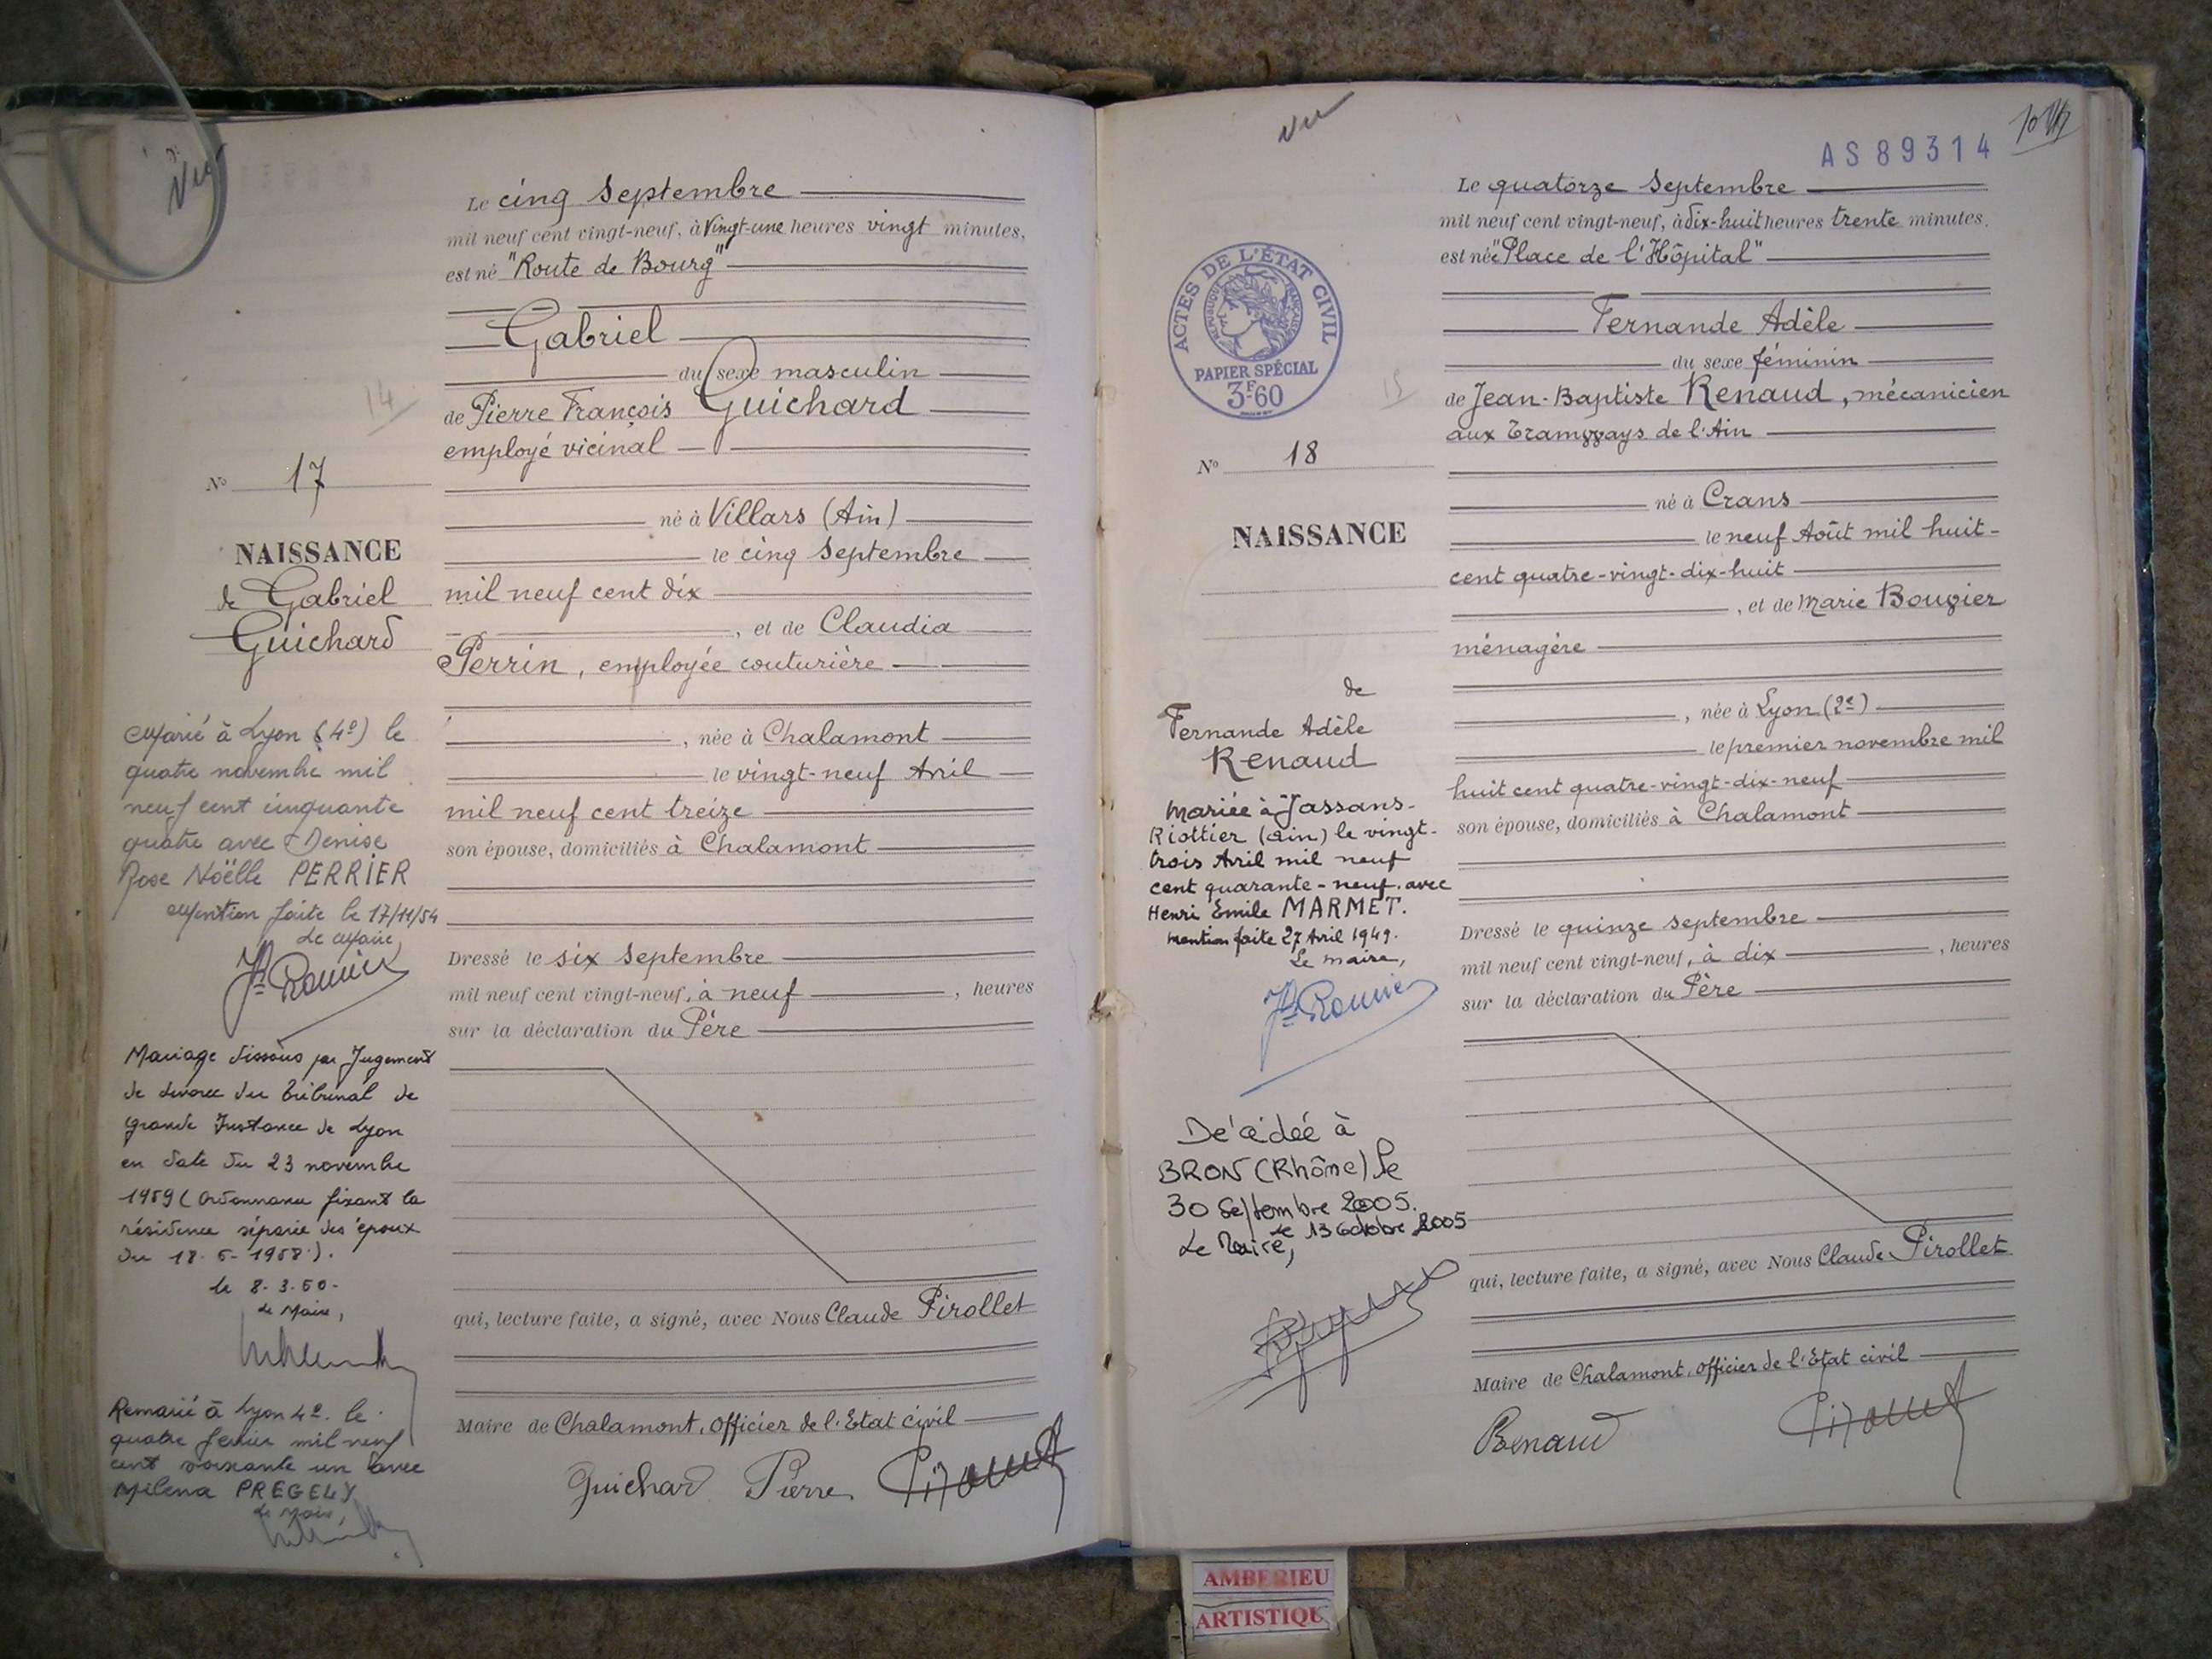 Vu
Le cinq Septembre
mil neuf cent vingt-neuf, à Vingt-une heures vingt minutes,
est né "Route de Bourg"
Gabriel
du sexe masculin
14
de Pierre François Guichard
employé vicinal
N° 17
né à Villars (Ain)
le cinq Septembre
mil neuf cent dix
, et de Claudia
Perrin, employée couturière
, née à Chalamont
le vingt-neuf Avril
mil neuf cent treize
son épouse, domiciliés à Chalamont
Dressé le six Septembre
mil neuf cent vingt-neuf, à neuf , heures
sur la déclaration du Père
qui, lecture faite, a signé, avec Nous Claude Pirollet
Maire de Chalamont, Officier de l'Etat civil
Guichard Pierre
NAISSANCE
de Gabriel
Guichard
Marié à Lyon (4e) le
quatre novembre mil
neuf cent cinquante
quatre avec Denise
Rose Noëlle PERRIER
Mention faite le 17/11/54
Le Maire,
Mariage dissous par Jugement
de divorce du tribunal de
grande Instance de Lyon
en date du 23 novembre
1959 (Ordonnance fixant la
résidence séparée des époux
du 18-6-1958).
le 8-3-60-
Le Maire,
Remarié à Lyon 4e. le
quatre février mil neuf
cent soixante un avec
Milena PREGELY
Le Maire,
Vu
AS89314
Le quatorze Septembre
mil neuf cent vingt-neuf, à dix-huit heures trente minutes,
est née "Place de l'Hôpital"
Fernande Adèle
du sexe féminin
15
de Jean-Baptiste Renaud, mécanicien
aux Tramways de l'Ain
né à Crans
le neuf Août mil huit-
cent quatre-vingt-dix-huit
, et de Marie Bouvier
ménagère
, née à Lyon (2e)
le premier novembre mil
huit cent quatre-vingt-dix-neuf
son épouse, domiciliés à Chalamont
Dressé le quinze septembre
mil neuf cent vingt-neuf, à dix , heures
sur la déclaration du Père
qui, lecture faite, a signé, avec Nous Claude Pirollet
Maire de Chalamont, Officier de l'Etat civil
Renaud
ACTES DE L'ÉTAT CIVIL
RÉPUBLIQUE FRANÇAISE
PAPIER SPÉCIAL
3F60
N° 18
NAISSANCE
de
Fernande Adèle
Renaud
Mariée à Jassans-
Riottier (Ain) le vingt-
trois Avril mil neuf
cent quarante-neuf. avec
Henri Emile MARMET.
Mention faite 27 Avril 1949.
Le Maire,
Décédée à
BRON (Rhône) le
30 Septembre 2005.
le 13 Octobre 2005
Le Maire,
AMBERIEU
ARTISTIQU